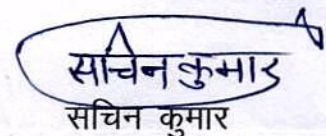 सचिन कुमार
सचिन कुमार